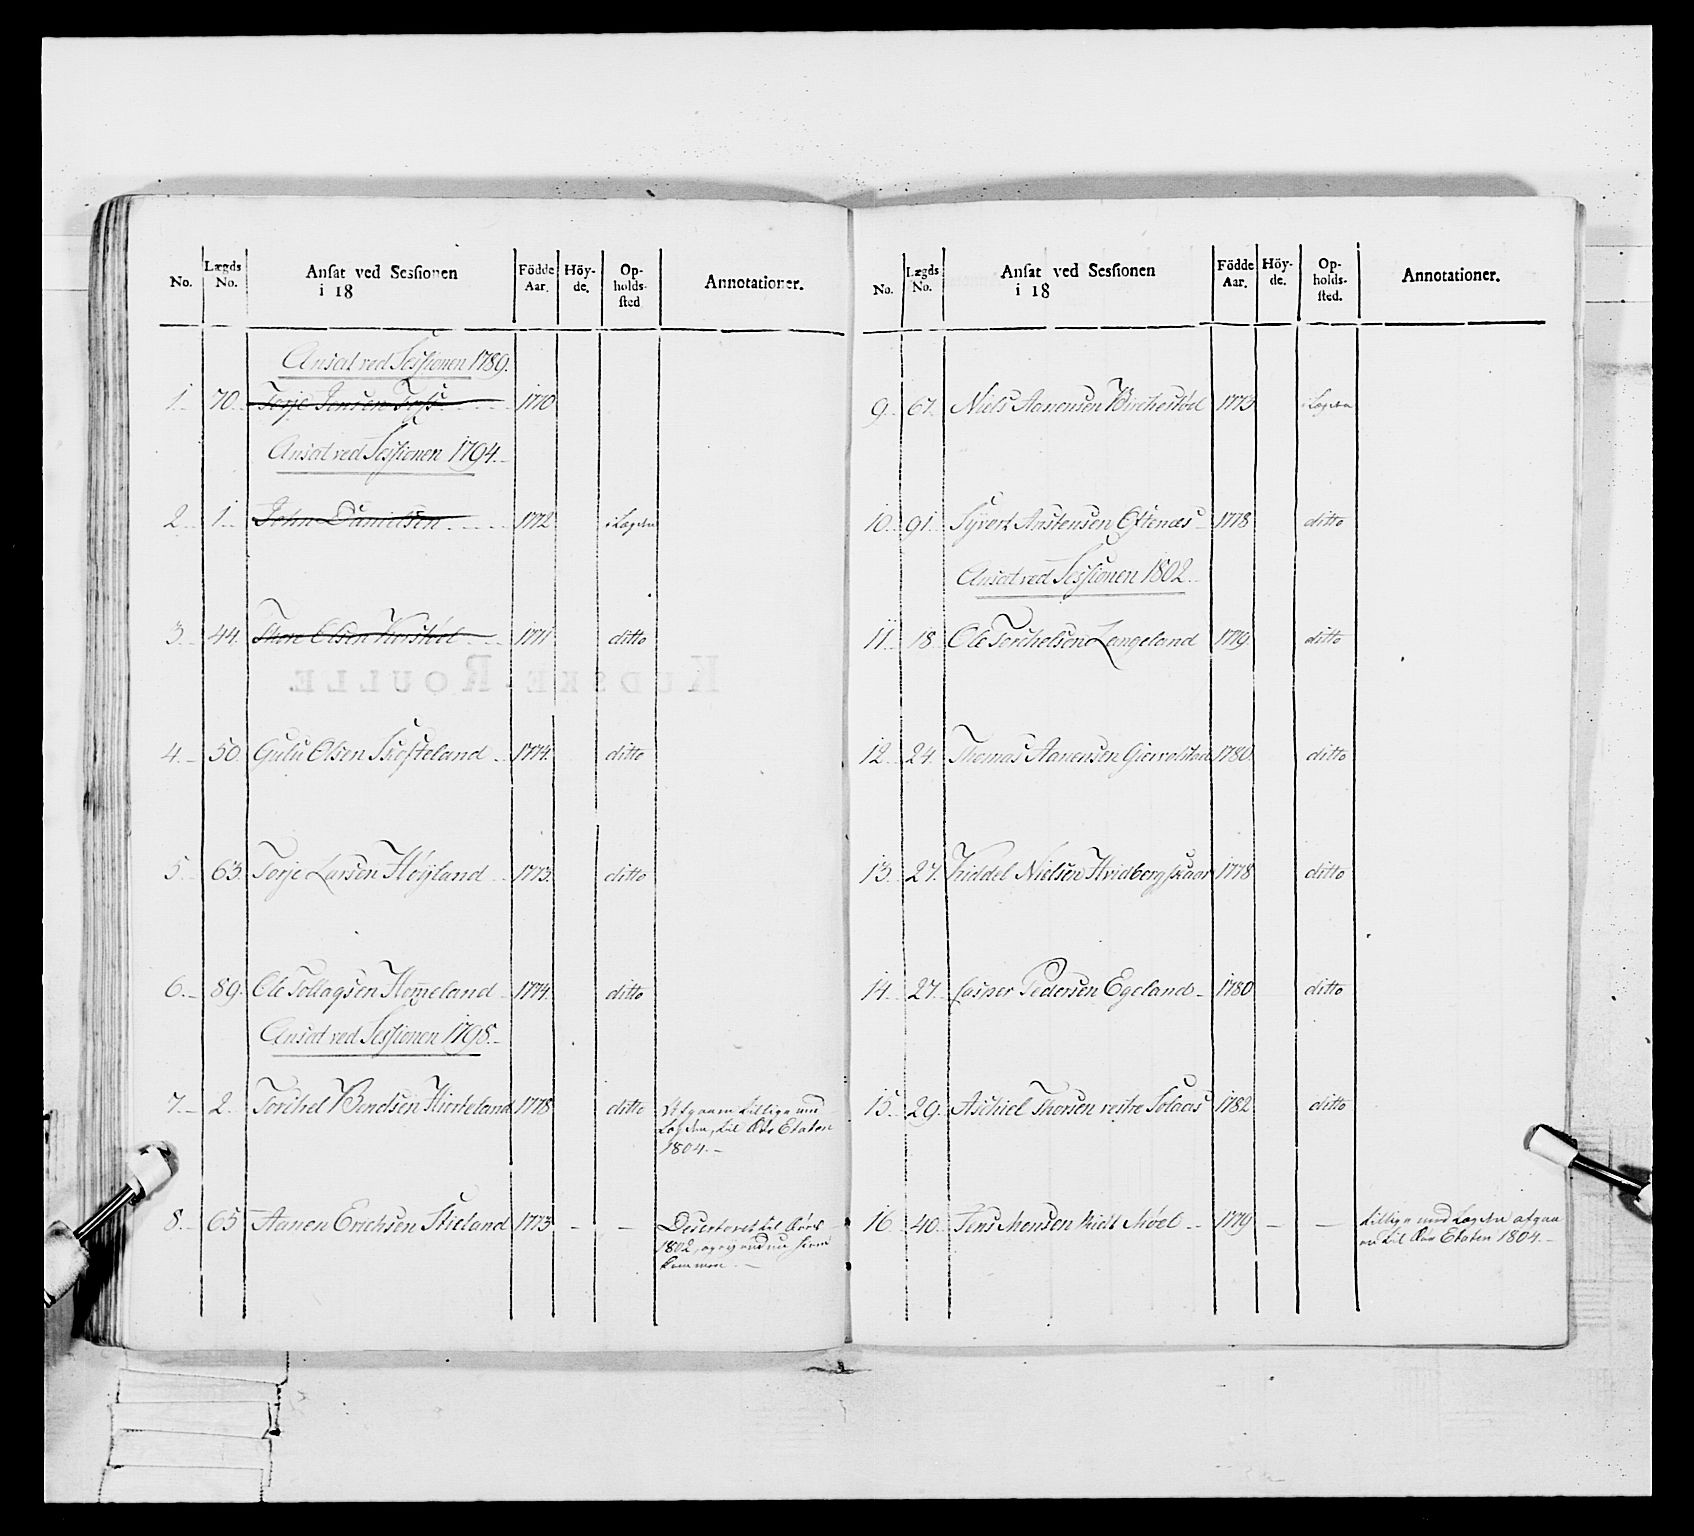 No.
Lægds No.
Ansat ved Sessionen i 18
Födde Aar.
Höy-de.
Op-holds-sted
Annotationer.
Ansat ved Sessionen 1789.
1. 70. Torje Jensen 1770
Ansat ved Sessionen 1794.
2. 1. John Danielsen 1772 i Lægden
3. 44. Thore Olsen 1771 ditto
4. 50. Gulu Olsen Skofteland 1774. ditto
5. 63. Torje Larsen Høyland 1773. ditto
6. 89. Ole Tollagsen Homeland 1774. ditto
Ansat ved Sessionen 1798.
7. 2. Torchel Bendtsen Hiorteland 1778 ditto Afgaaen tillige med
Lægden, til Søe Etaten
1804.
8. 65 Aanen Erichsen Skieland 1773 – – Deserteret til Søes
1802, og ey endnu hiem
kommen.
No.
Lægds No.
Ansat ved Sessionen i 18
Födde Aar.
Höy-de.
Op-holds-sted.
Annotationer.
9. 67. Niels Aanensen Birchestød 1773 i Lægden
10. 91. Syvert Anstensen Oftenæs 1778 ditto
Ansat ved Sessionen 1802.
11. 18 Ole Torchelsen Langeland 1779 ditto
12. 24. Thomas Aanensen Giervolstad 1780 ditto
13. 27. Kiddel Nielsen Hvidbergskaar 1778 ditto
14. 27. Casper Pedersen Egeland 1780 ditto
15. 29. Aschiel Thorsen vestre Solaas 1782 ditto
16. 40. Jens Jensen Møel 1779 – – tillige med Lægden afgaa
en til Søe Etaten 1804.
KUDSKE-ROULLE